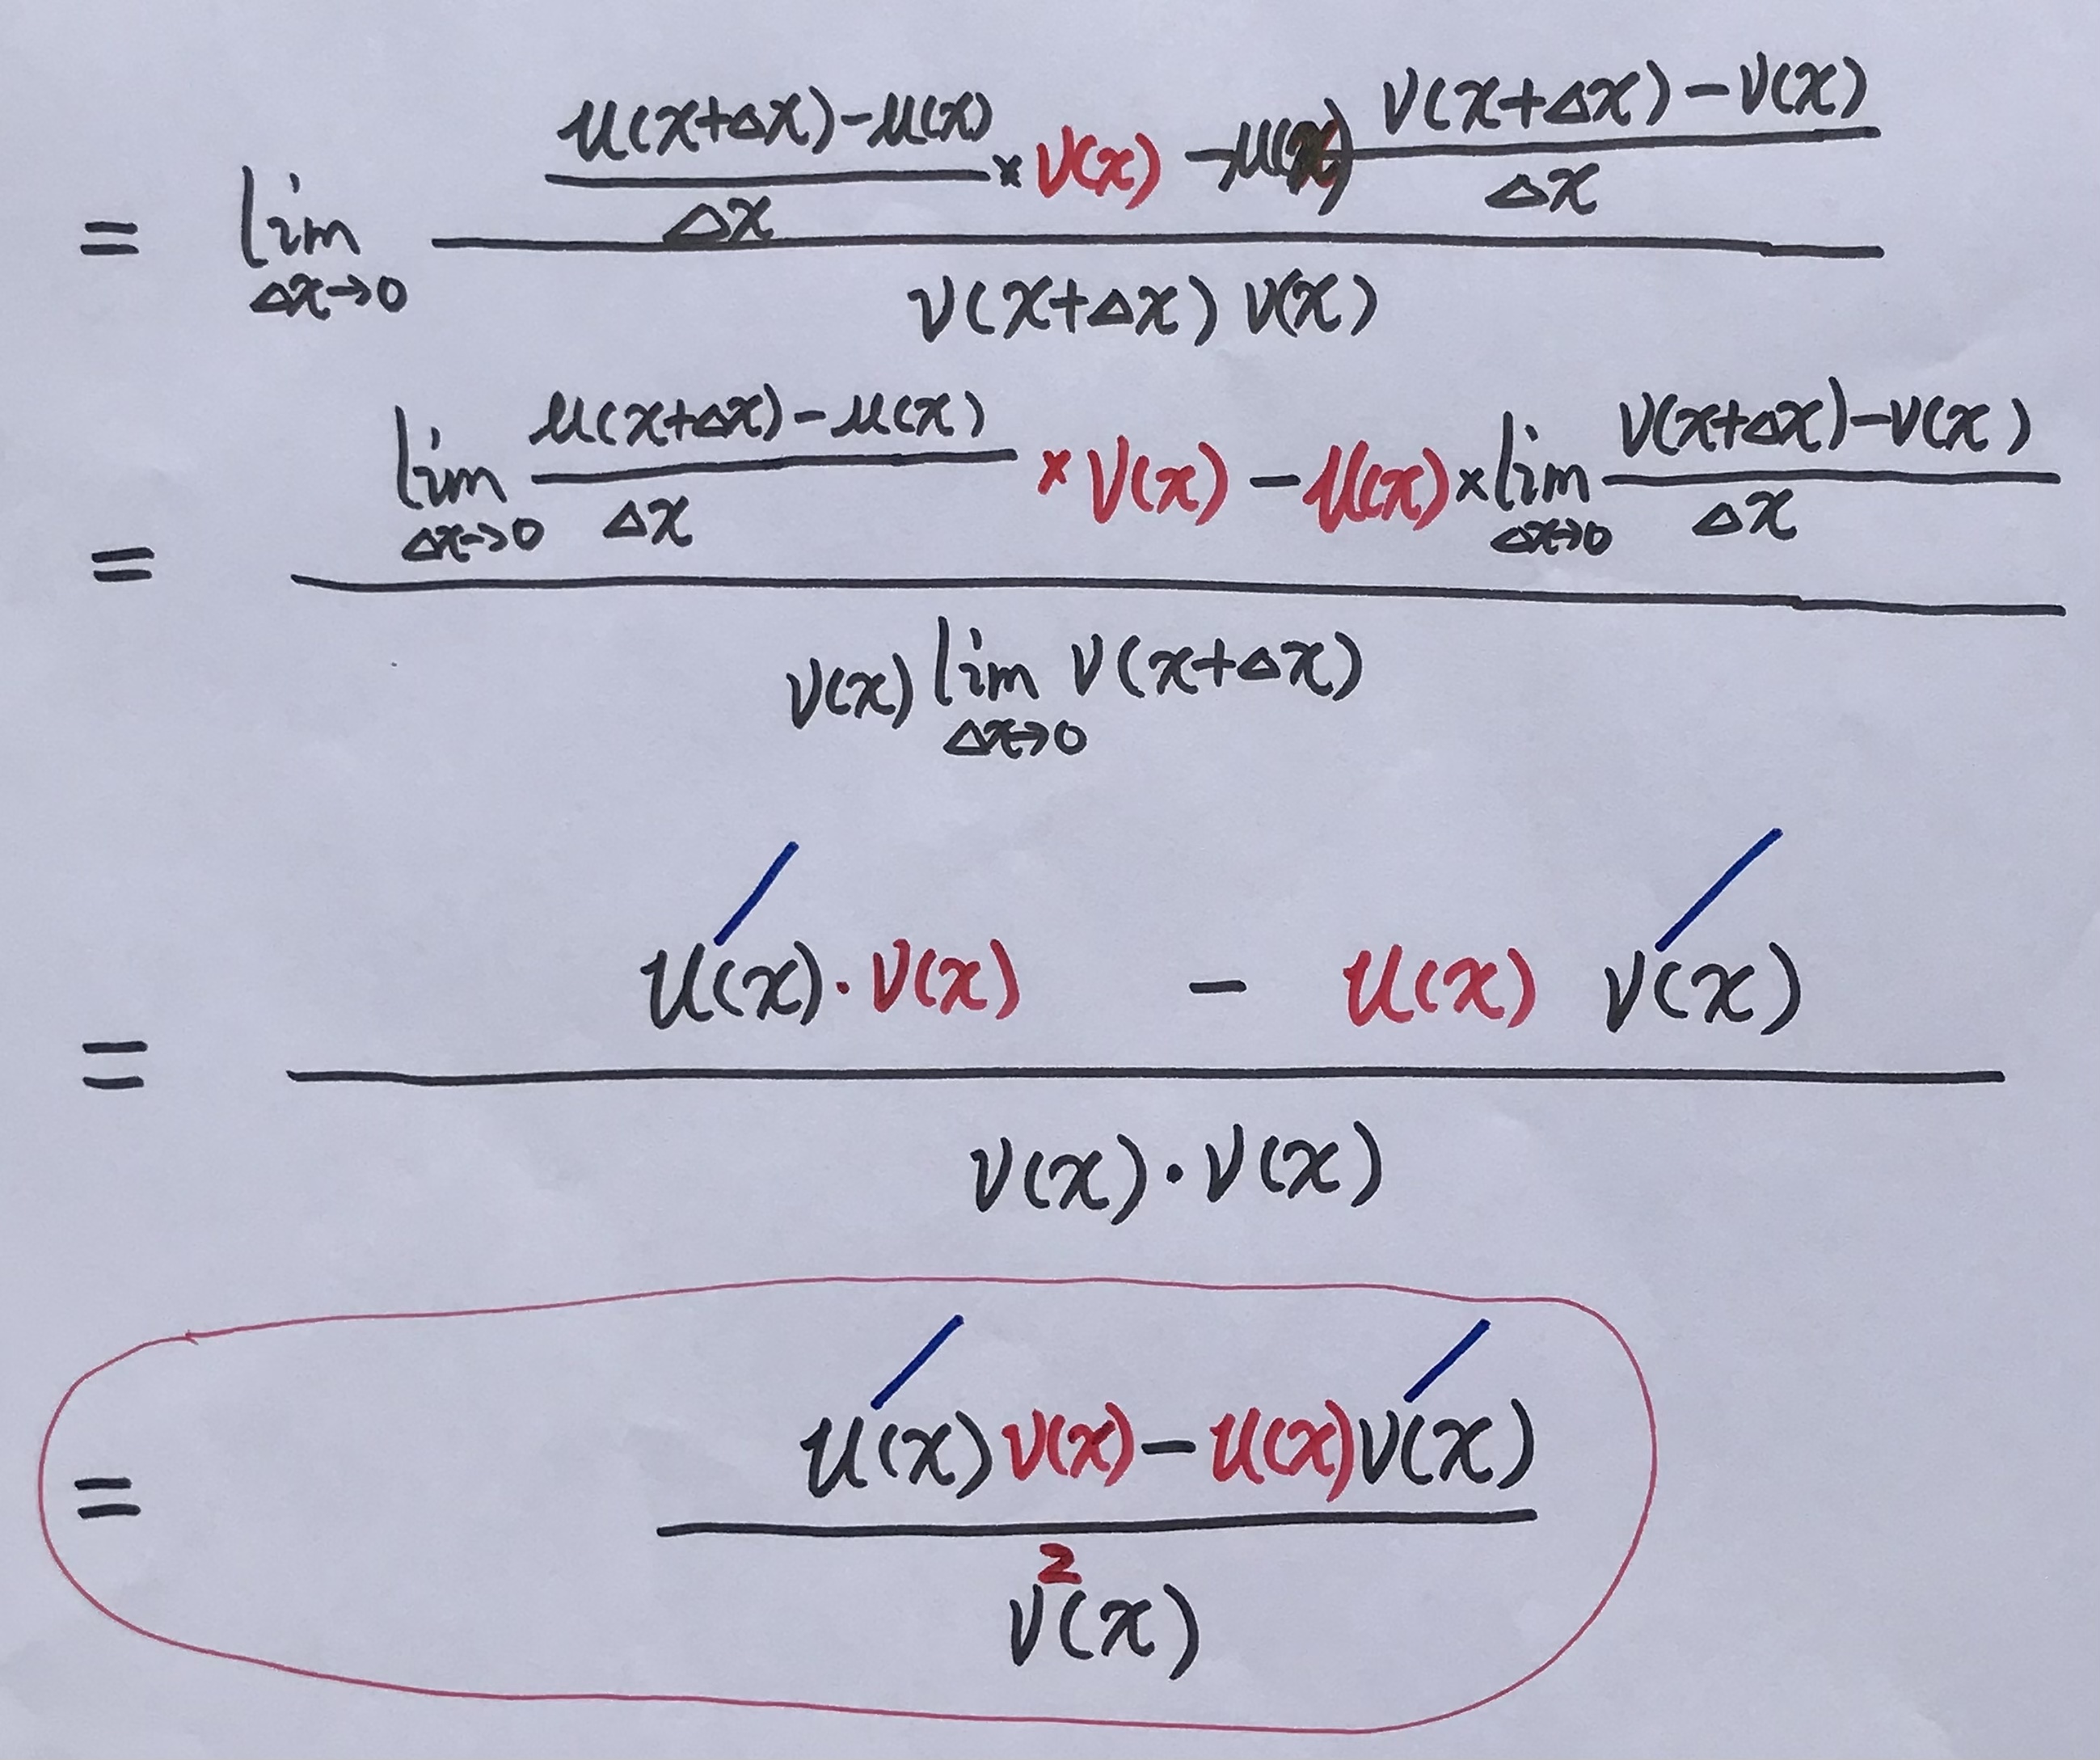 = lim Δx→0 (u(x+Δx)-u(x))/Δx × v(x) - u(x) (v(x+Δx)-v(x))/Δx / v(x+Δx) v(x)
= lim Δx→0 (u(x+Δx)-u(x))/Δx × v(x) - u(x) × lim Δx→0 (v(x+Δx)-v(x))/Δx / v(x) lim Δx→0 v(x+Δx)
= u′(x)·v(x) - u(x) v′(x) / v(x)·v(x)
= u′(x)v(x)-u(x)v′(x) / v²(x)